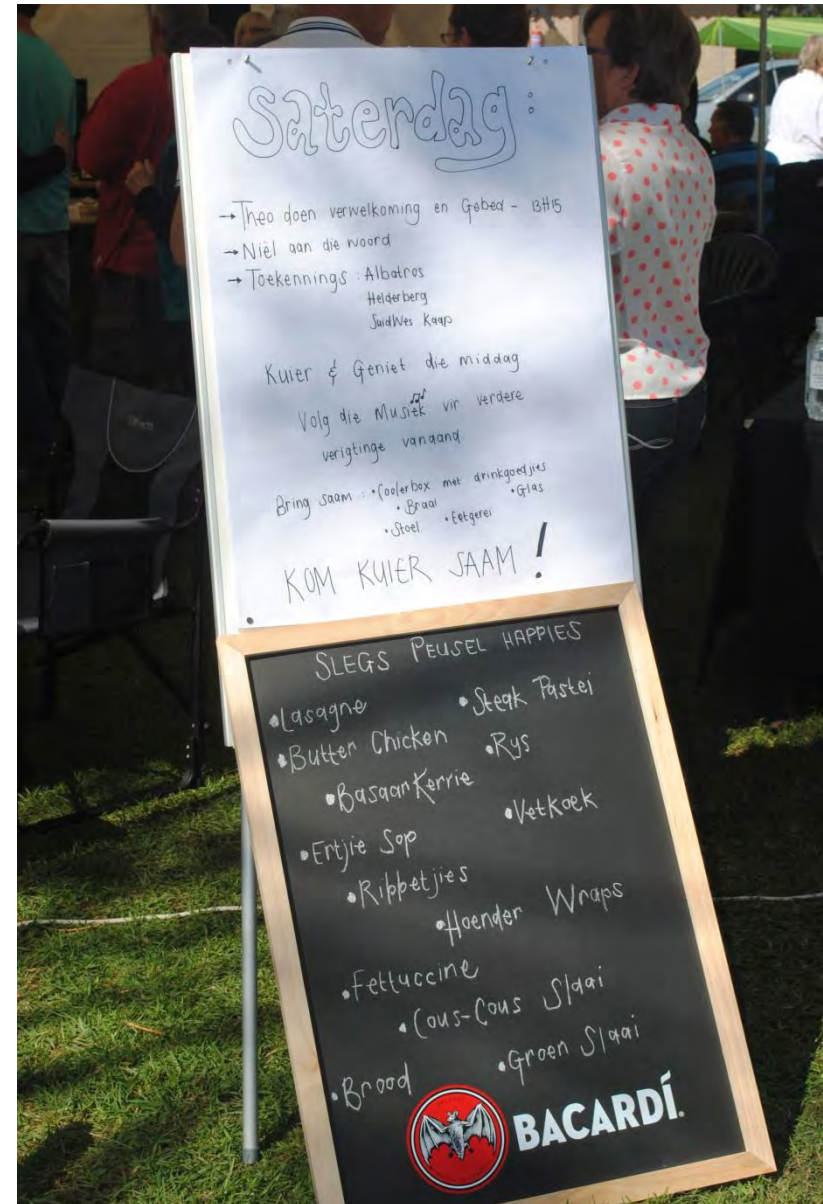 Saterdag:
→ Theo doen verwelkoming en Gebed - 13H15
→ Niël aan die woord
→ Toekennings : Albatros
Helderberg
SuidWes Kaap
Kuier & Geniet die middag
Volg die Musiek vir verdere
verigtinge vanaand
Bring saam : • Coolerbox met drinkgoedjies
• Braai • Glas
• Stoel • Eetgerei
KOM KUIER SAAM !
SLEGS PEUSEL HAPPIES
• Lasagne • Steak Pastei
• Butter Chicken • Rys
• Basaar Kerrie
• Vetkoek
• Ertjie Sop
• Ribbetjies
• Hoender Wraps
• Fettuccine
• Cous-Cous Slaai
• Groen Slaai
• Brood
BACARDÍ.